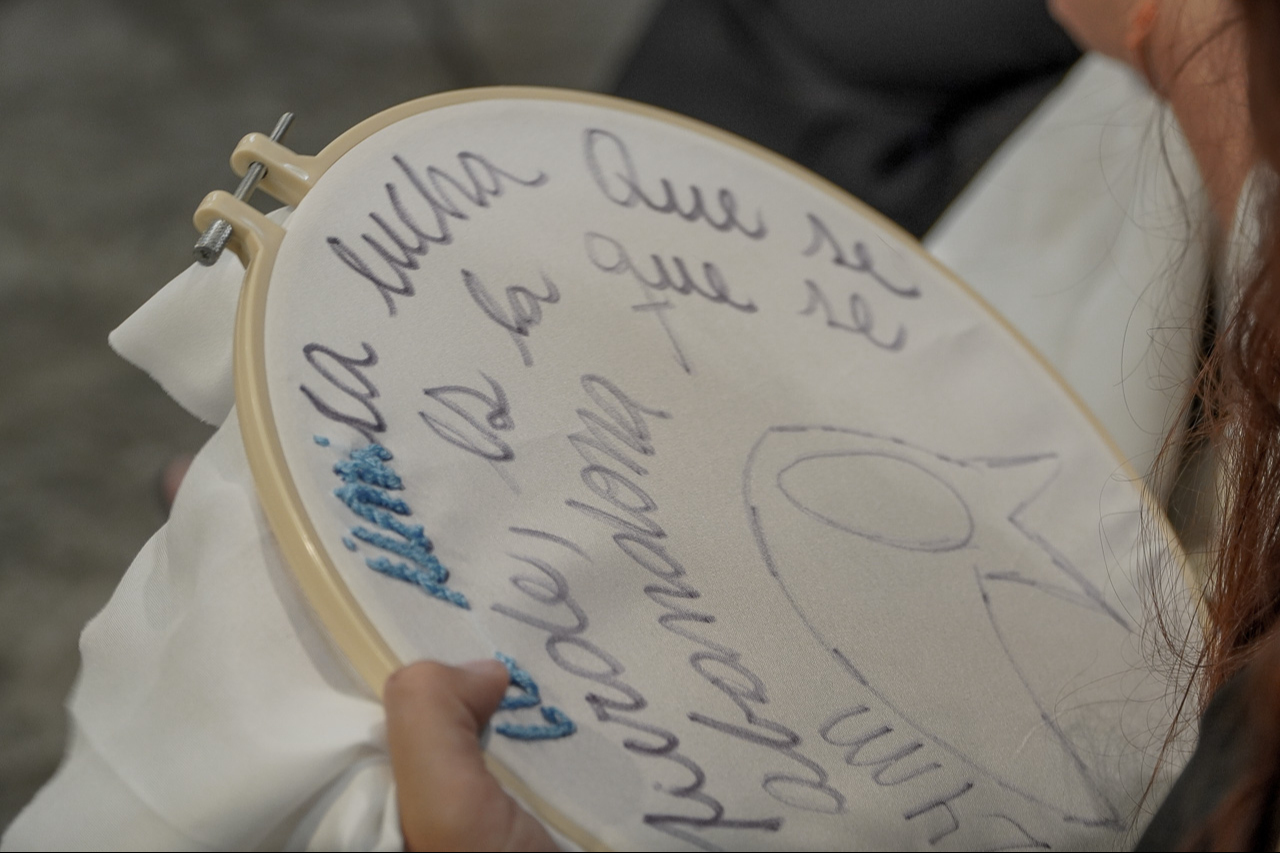 La única lucha Que se
pierde, es la que se
abandona